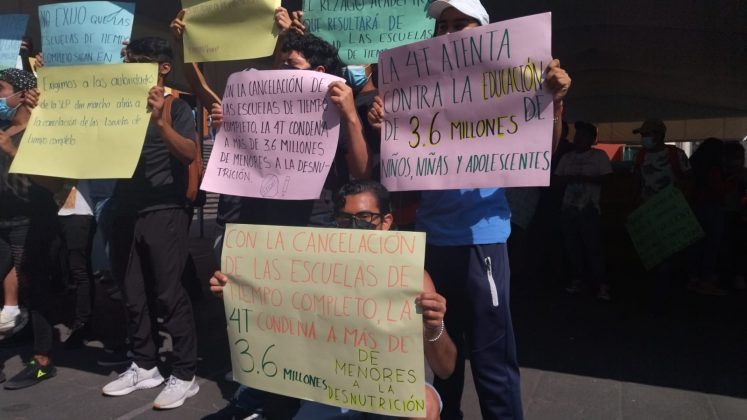 NO EXIJO QUE
LAS ESCUELAS
DE TIEMPO
COMPLETO SIGAN EN
REZAGO ACADÉMICO
QUE RESULTARÁ
LAS ESCUELAS
DE TIEMPO
Exigimos a las autoridades
de la SEP den marcha atrás a
la cancelación de las Escuelas de
tiempo completo.
CON LA CANCELACIÓN DE
LAS ESCUELAS DE TIEMPO
COMPLETO, LA 4T CONDENA
A MÁS DE 3.6 MILLONES
DE MENORES A LA DESNU
TRICIÓN
LA 4T ATENTA
CONTRA LA EDUCACIÓN
DE 3.6 MILLONES DE
NIÑOS, NIÑAS Y ADOLESCENTES
CON LA CANCELACIÓN
DE LAS ESCUELAS DE
TIEMPO COMPLETO, LA
4T CONDENA A MÁS DE
3.6 MILLONES DE MENORES A LA DESNUTRICIÓN